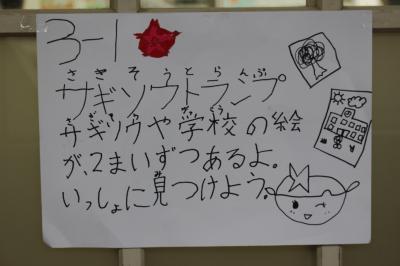 3-1
さぎそうとらんぷ
サギソウトランプ
さぎそう がっこう
サギソウや学校の絵
が、2まいずつあるよ。
いっしょに見つけよう。